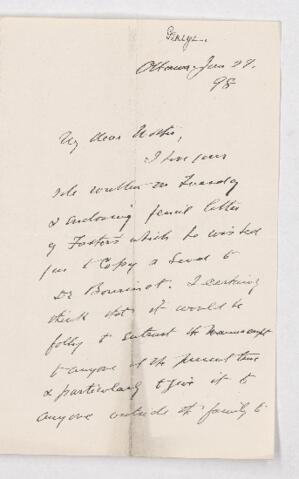 Ottawa, Jan 27.
98
My dear
I have your
note written on Tuesday
& enclosing pencil letter
of Foster's which he wished
you to copy & send to
Dr Bourinot. I certainly
think that it would be
folly to entrust the Manuscript
to anyone at the present time
& particularly to give it to
anyone outside the family to